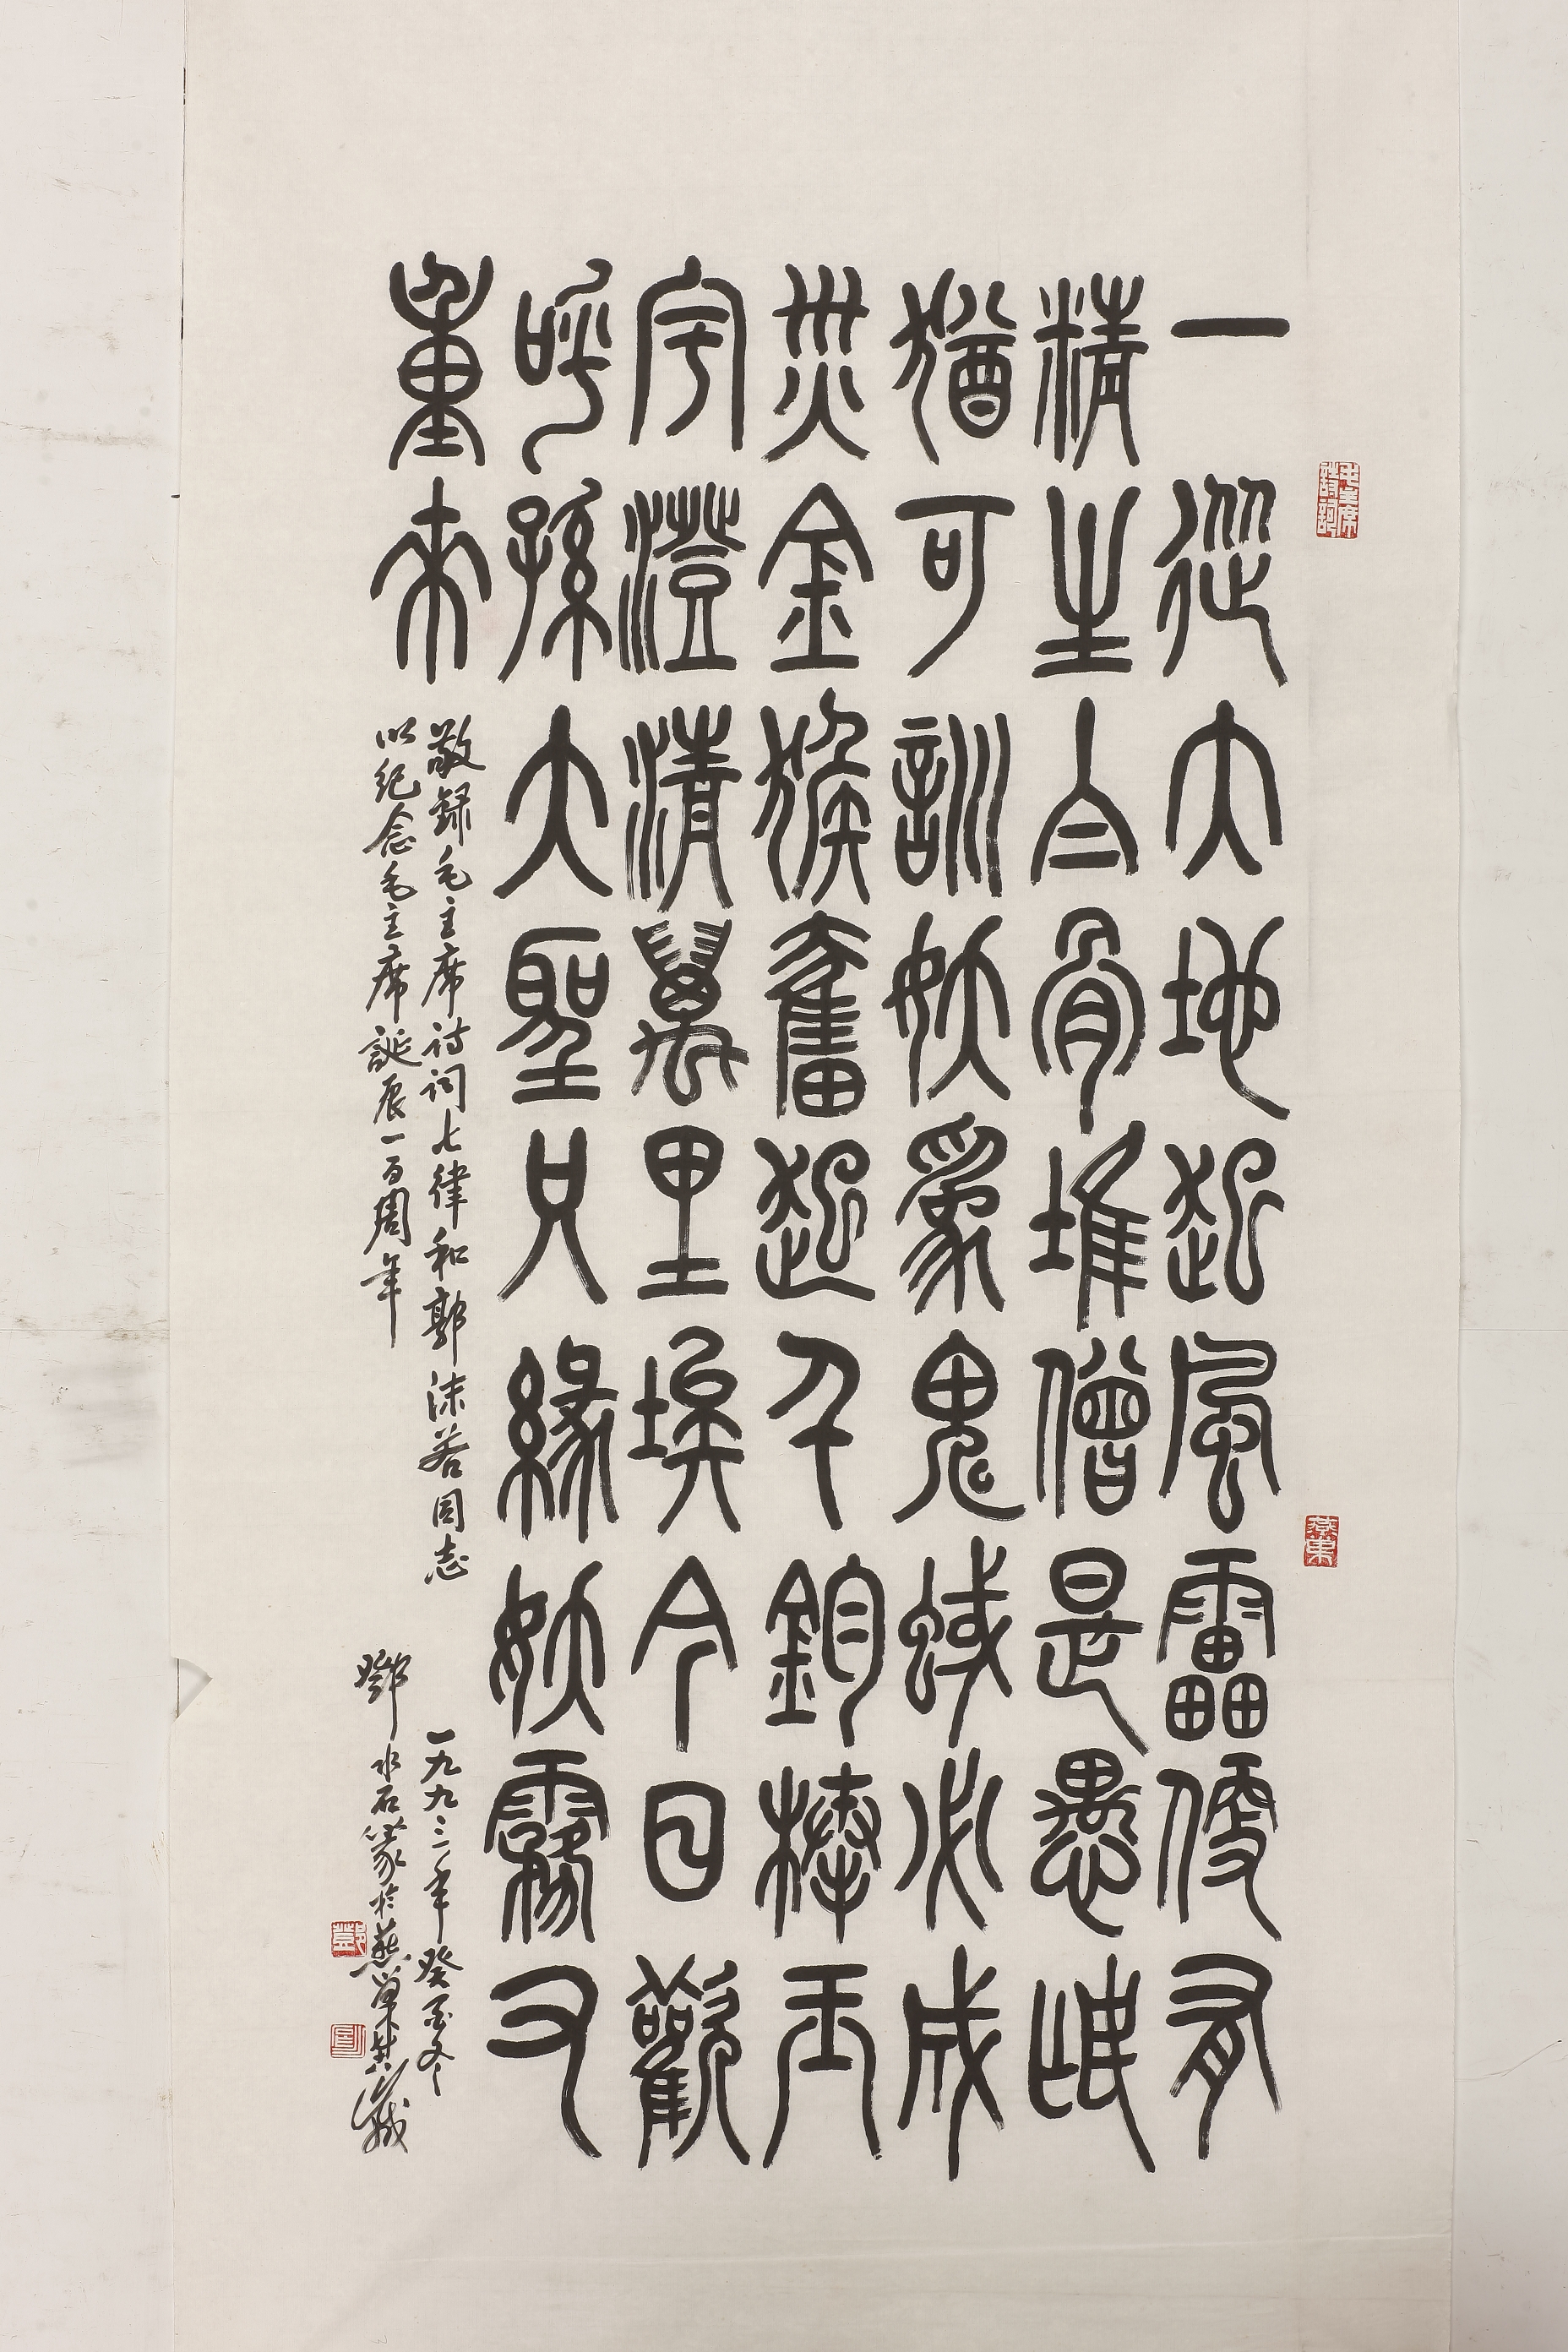 毛主席詩詞
燕巢
一從大地起風雷便有
精生白骨堆僧是愚氓
猶可訓妖爲鬼蜮必成
災金猴奮起千鈞棒玉
宇澄清萬里埃今日歡
呼孫大聖只緣妖霧又
重來
敬録毛主席诗词七律和郭沫若同志
以纪念毛主席誕辰一百周年
一九九三年癸酉冬
鄧水石篆於燕巢
鄧